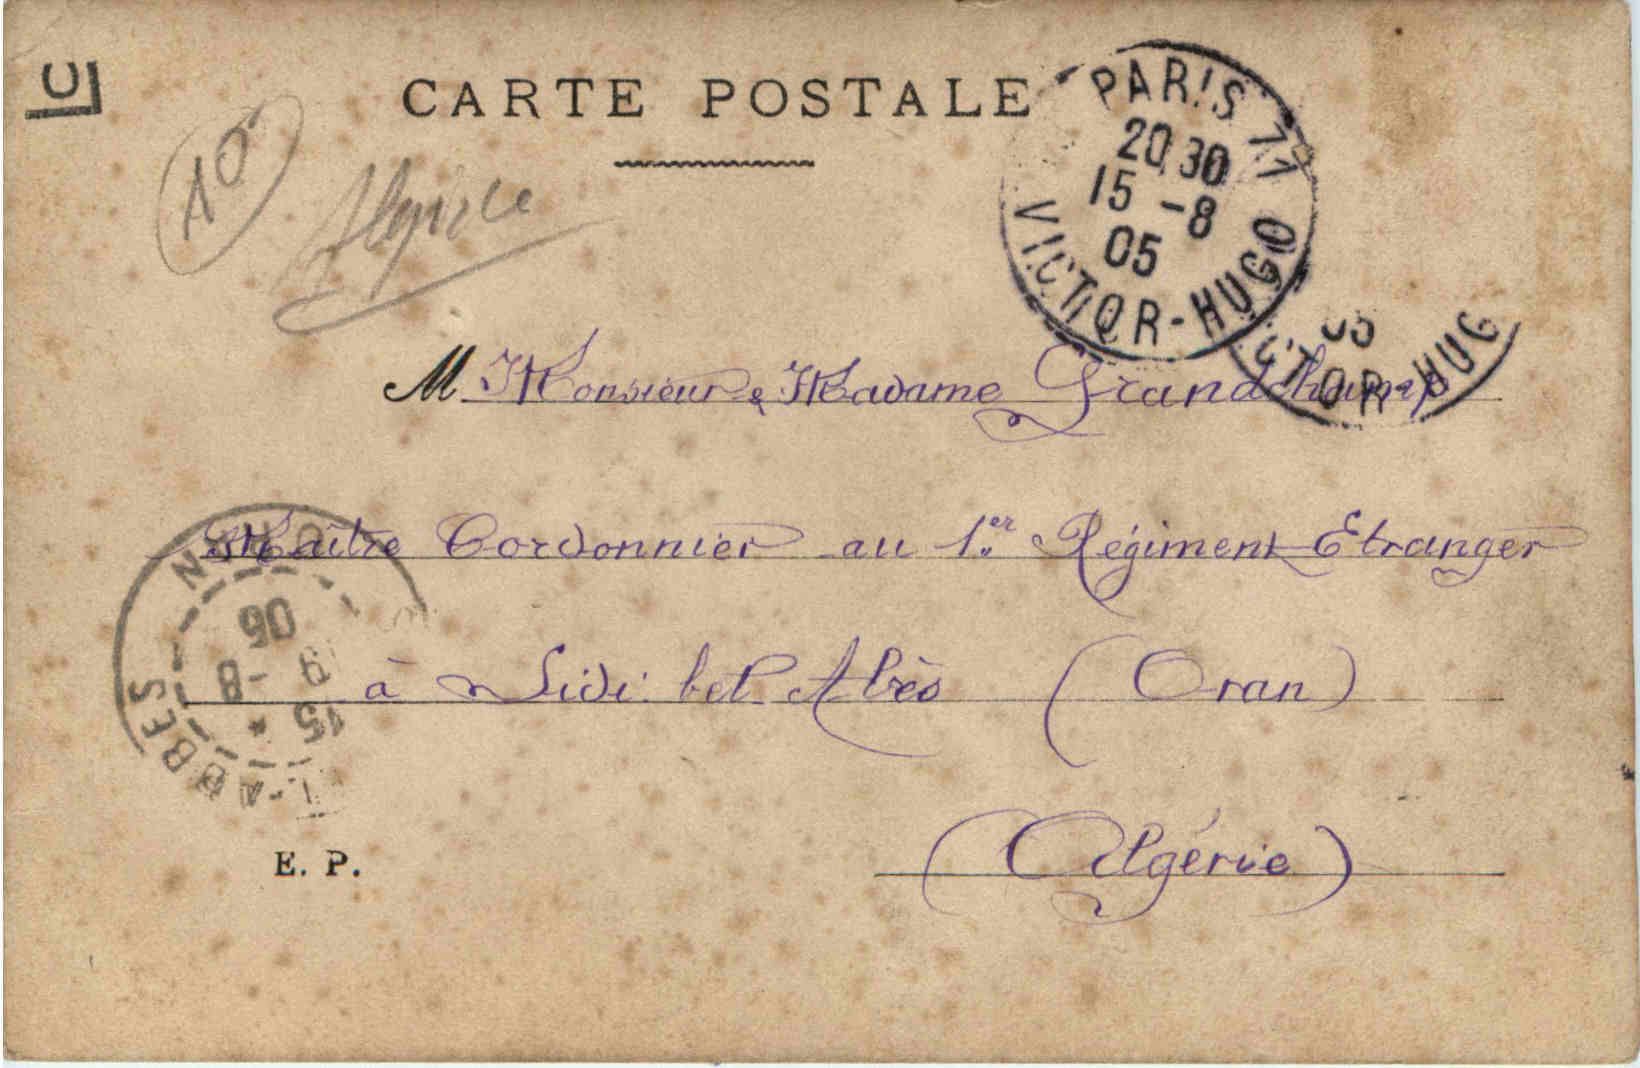 C
CARTE POSTALE
PARIS 71
20 30
15 - 8
05
VICTOR-HUGO
10
Algérie
05
CTOR-HUG
M Monsieur & Madame Grandchamp
Maître Cordonnier au 1.er Régiment Etranger
à Sidi. bel. Abès (Oran)
(Algérie)
ORAN
15
-8
BBES
E. P.